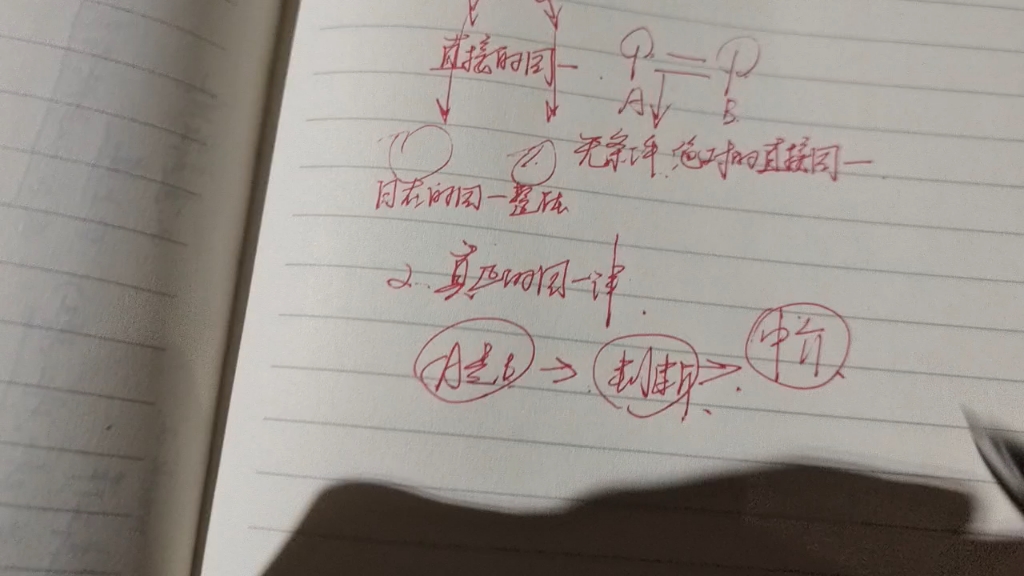 直接的同一 P = P
A B
无条件.绝对的直接同一
自在的同一整体
2. 真正的同一律.
A是B → 判断 → 中介